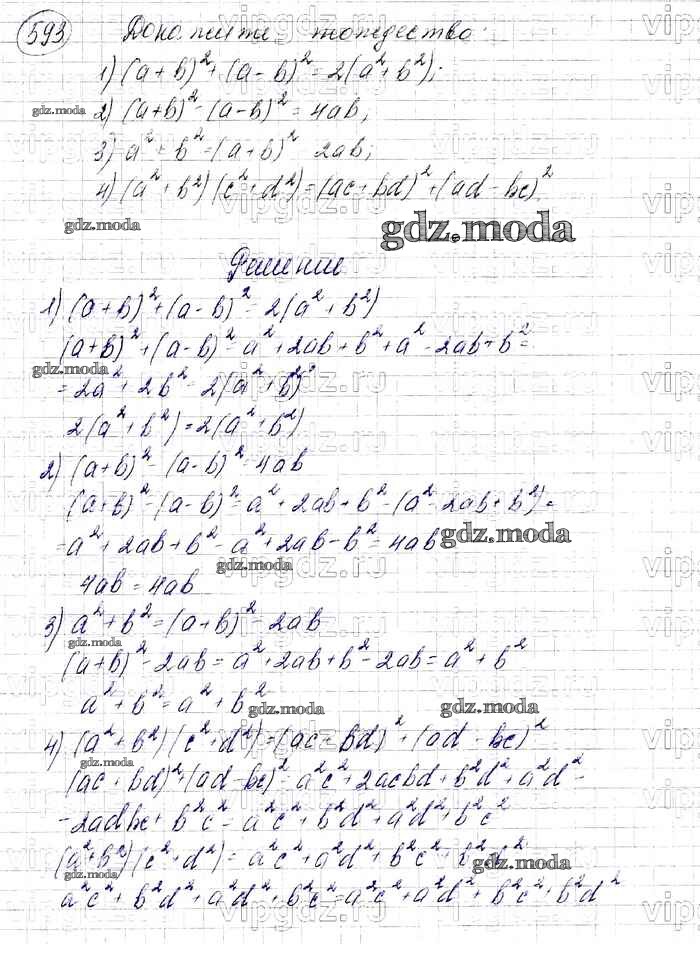 593 Докажите тождество:
1) (a + b)² + (a - b)² = 2(a² + b²);
gdz.moda
2) (a+b)² - (a-b)² = 4ab;
3) a² + b² = (a+b)² - 2ab;
4) (a² + b²)(c² + d²) = (ac + bd)² + (ad - bc)²
gdz.moda
gdz.moda
Решение
1) (a + b)² + (a - b)² = 2(a² + b²)
(a+b)² + (a - b)² = a² + 2ab + b² + a² - 2ab + b² =
gdz.moda
= 2a² + 2b² = 2(a² + b²)
2(a² + b²) = 2(a² + b²)
2) (a+b)² - (a-b)² = 4ab
(a+b)² - (a-b)² = a² + 2ab + b² - (a² - 2ab + b²) =
= a² + 2ab + b² - a² + 2ab - b² = 4ab
gdz.moda
gdz.moda
4ab = 4ab
3) a² + b² = (a+b)² - 2ab
gdz.moda
(a+b)² - 2ab = a² + 2ab + b² - 2ab = a² + b²
a² + b² = a² + b²
gdz.moda
gdz.moda
4) (a² + b²)(c² + d²) = (ac + bd)² + (ad - bc)²
gdz.moda
(ac + bd)² + (ad - bc)² = a²c² + 2acbd + b²d² + a²d² -
- 2adbc + b²c² = a²c² + b²d² + a²d² + b²c²
(a² + b²)(c² + d²) = a²c² + a²d² + b²c² + b²d²
gdz.moda
gdz.moda
a²c² + b²d² + a²d² + b²c² = a²c² + a²d² + b²c² + b²d²
vipgdz.ru